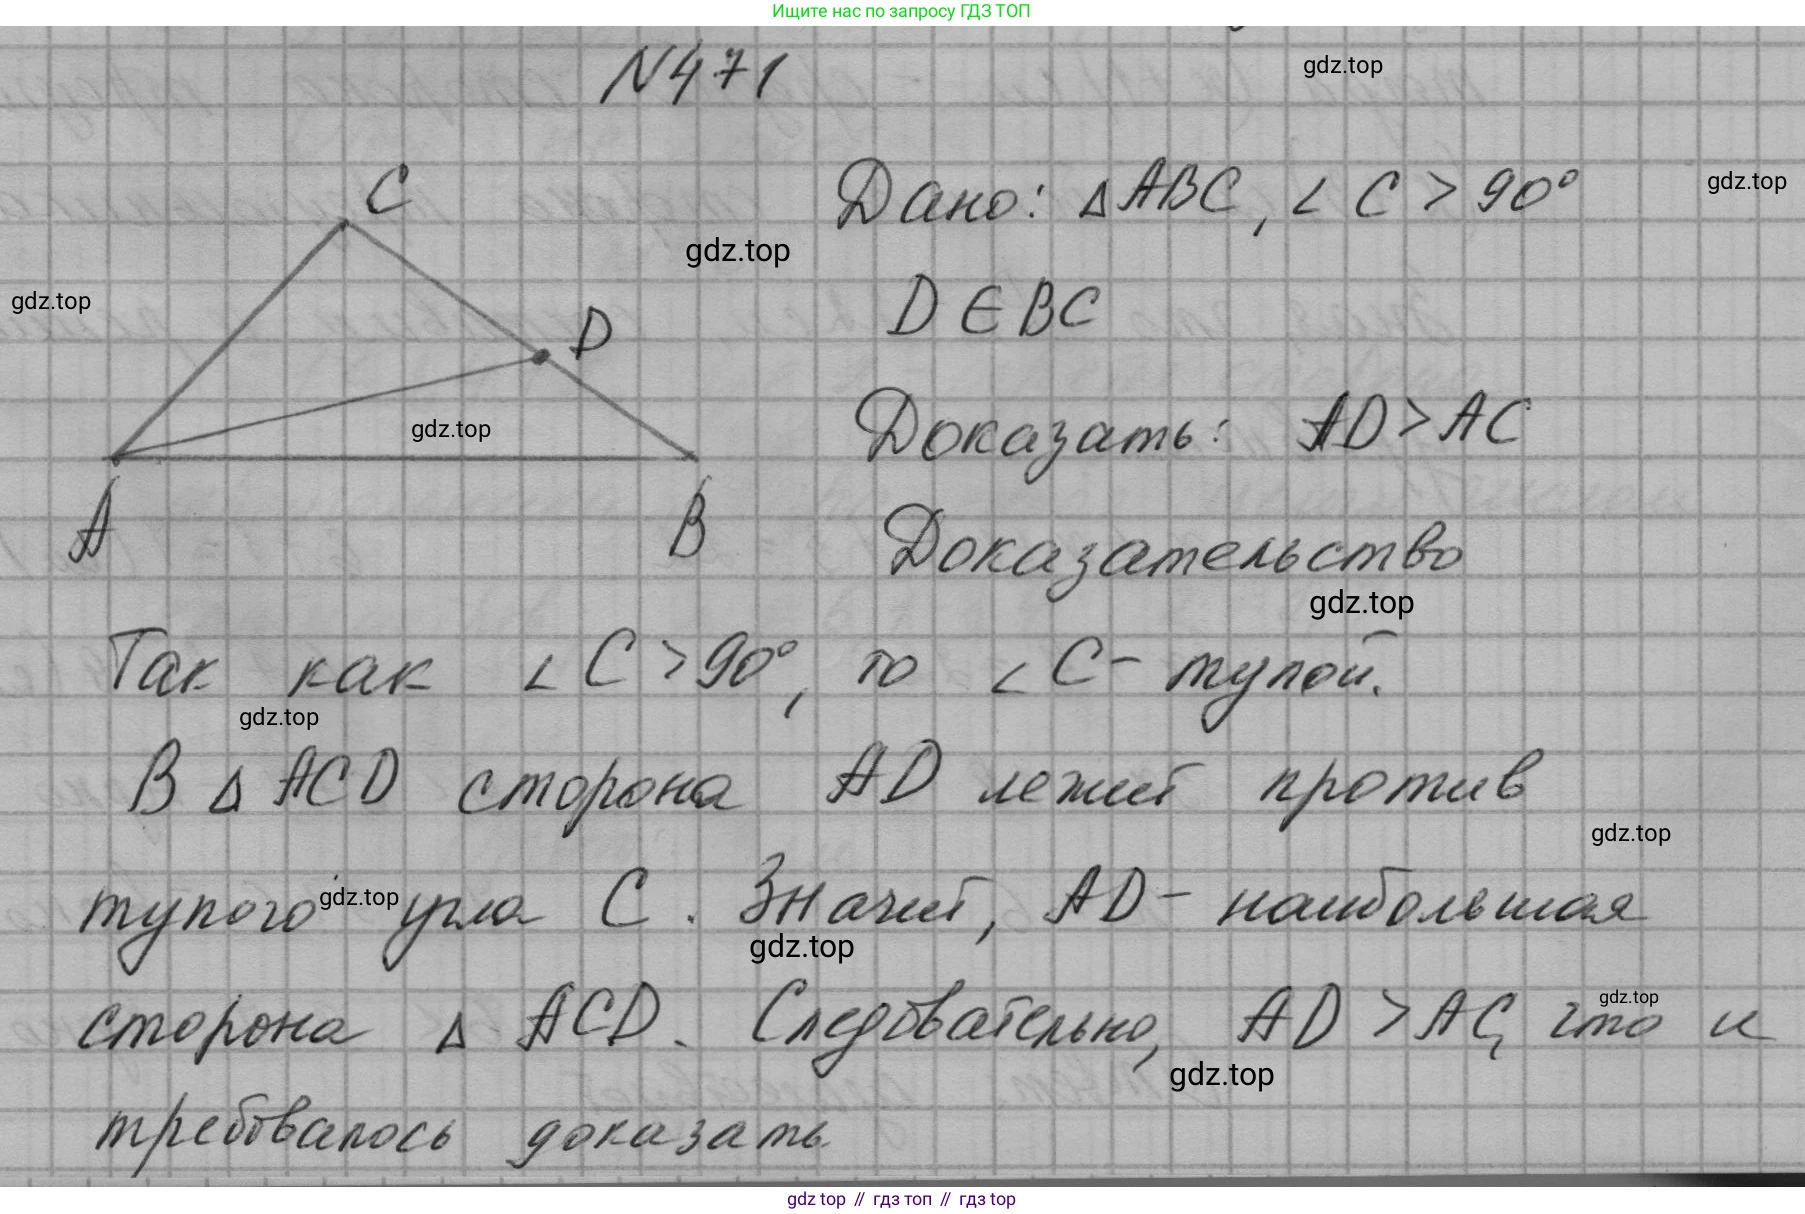 Ищите нас по запросу ГДЗ ТОП
N471
gdz.top
C
Дано: △ABC, ∠C > 90°
gdz.top
gdz.top
gdz.top
D ∈ BC
D
gdz.top
Доказать: AD > AC
A
B
Доказательство
gdz.top
Так как ∠C > 90°, то ∠C – тупой.
gdz.top
В △ACD сторона AD лежит против
gdz.top
тупого угла C. Значит, AD – наибольшая
gdz.top
gdz.top
сторона △ ACD. Следовательно, AD > AC, что и
gdz.top
gdz.top
требовалось доказать.
gdz top // гдз топ // гдз top